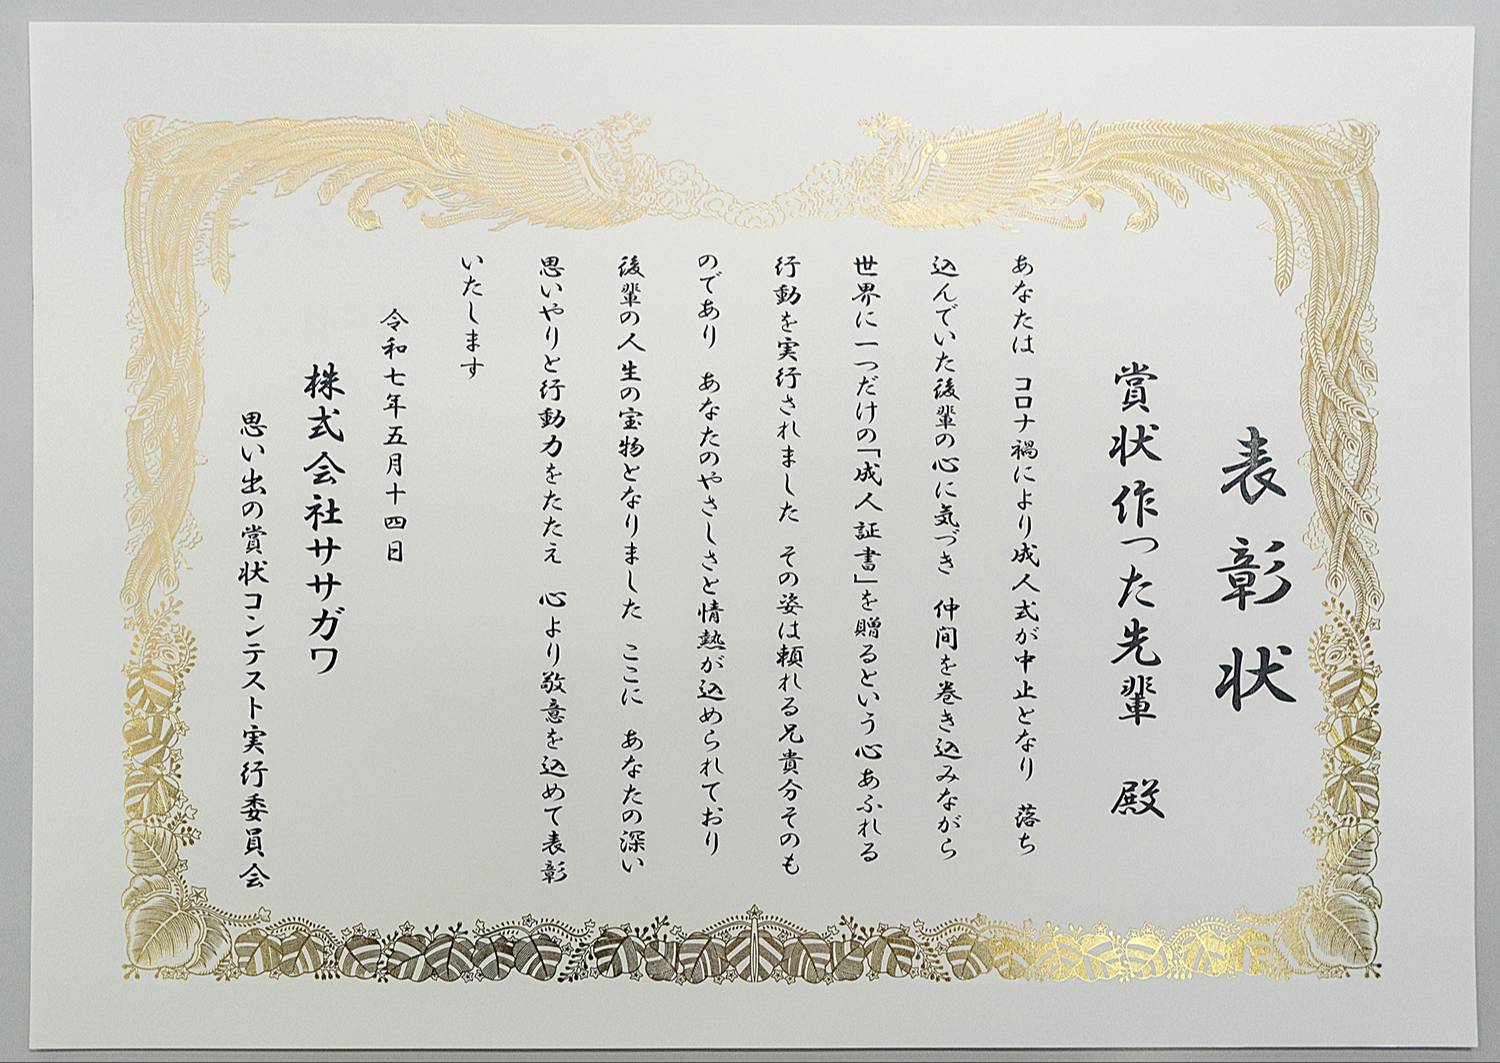 表彰状
賞状作った先輩　殿
あなたは　コロナ禍により成人式が中止となり　落ち
込んでいた後輩の心に気づき　仲間を巻き込みながら
世界に一つだけの「成人証書」を贈るという心あふれる
行動を実行されました　その姿は頼れる兄貴分そのも
のであり　あなたのやさしさと情熱が込められており
後輩の人生の宝物となりました　ここに　あなたの深い
思いやりと行動力をたたえ　心より敬意を込めて表彰
いたします
令和七年五月十四日
株式会社ササガワ
思い出の賞状コンテスト実行委員会